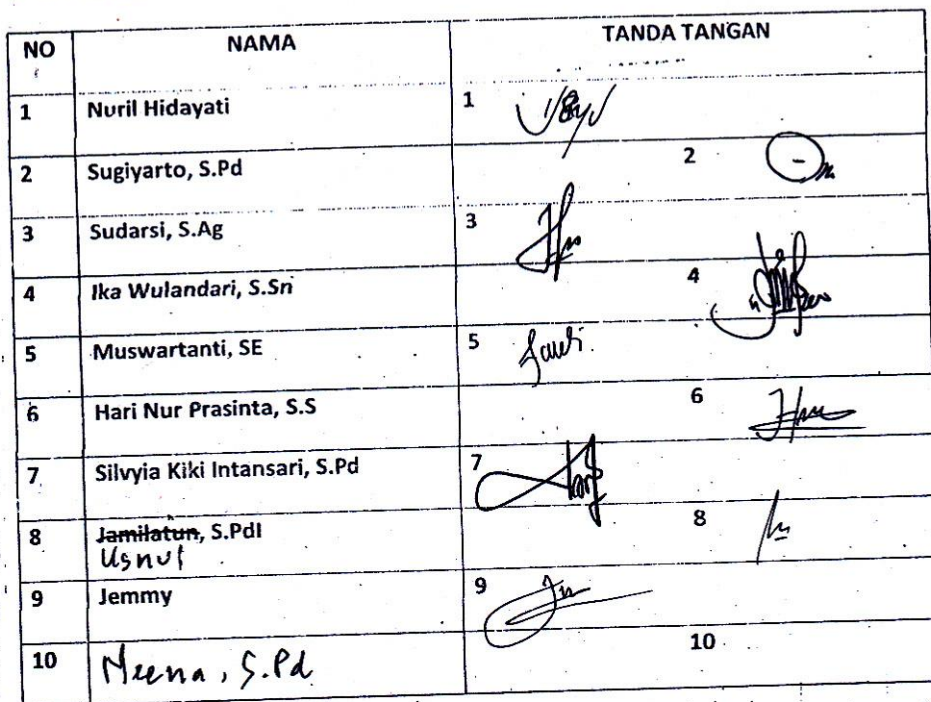 NO NAMA TANDA TANGAN
1 Nuril Hidayati 1
2 Sugiyarto, S.Pd 2
3 Sudarsi, S.Ag 3
4 Ika Wulandari, S.Sn 4
5 Muswartanti, SE 5
6 Hari Nur Prasinta, S.S 6
7 Silvyia Kiki Intansari, S.Pd 7
8 Jamilatun, S.PdI 8
Usnul
9 Jemmy 9
10 Meena, S.Pd 10